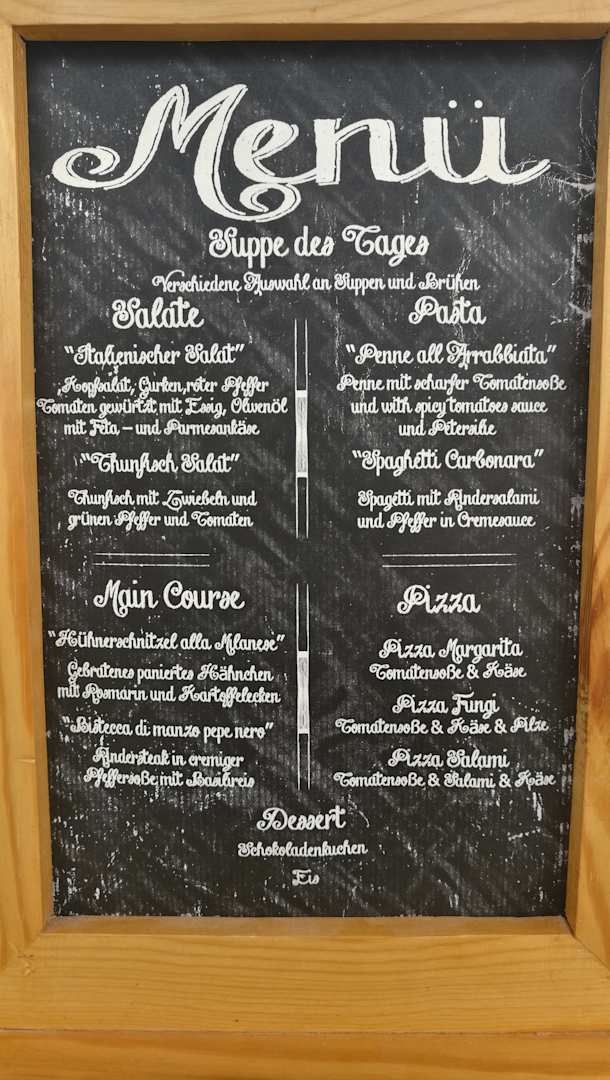 Menü
Suppe des Tages
Verschiedene Auswahl an Suppen und Brühen
Salate
"Italienischer Salat"
Kopfsalat, Gurken, roter Pfeffer
Tomaten gewürtzt mit Essig, Olivenöl
mit Feta – und Parmesankäse
"Thunfisch Salat"
Thunfisch mit Zwiebeln und
grünen Pfeffer und Tomaten
Pasta
"Penne all Arrabbiata"
Penne mit scharfer Tomatensoße
und with spicy tomatoes sauce
und Petersilie
"Spaghetti Carbonara"
Spagetti mit Rindersalami
und Pfeffer in Cremesauce
Main Course
"Hühnerschnitzel alla Milanese"
Gebratenes paniertes Hähnchen
mit Rosmarin und Kartoffelecken
"Bistecca di manzo pepe nero"
Rindersteak in cremiger
Pfeffersoße mit Basilireis
Pizza
Pizza Margarita
Tomatensoße & Käse
Pizza Fungi
Tomatensoße & Käse & Pilze
Pizza Salami
Tomatensoße & Salami & Käse
Dessert
Schokoladenkuchen
Eis